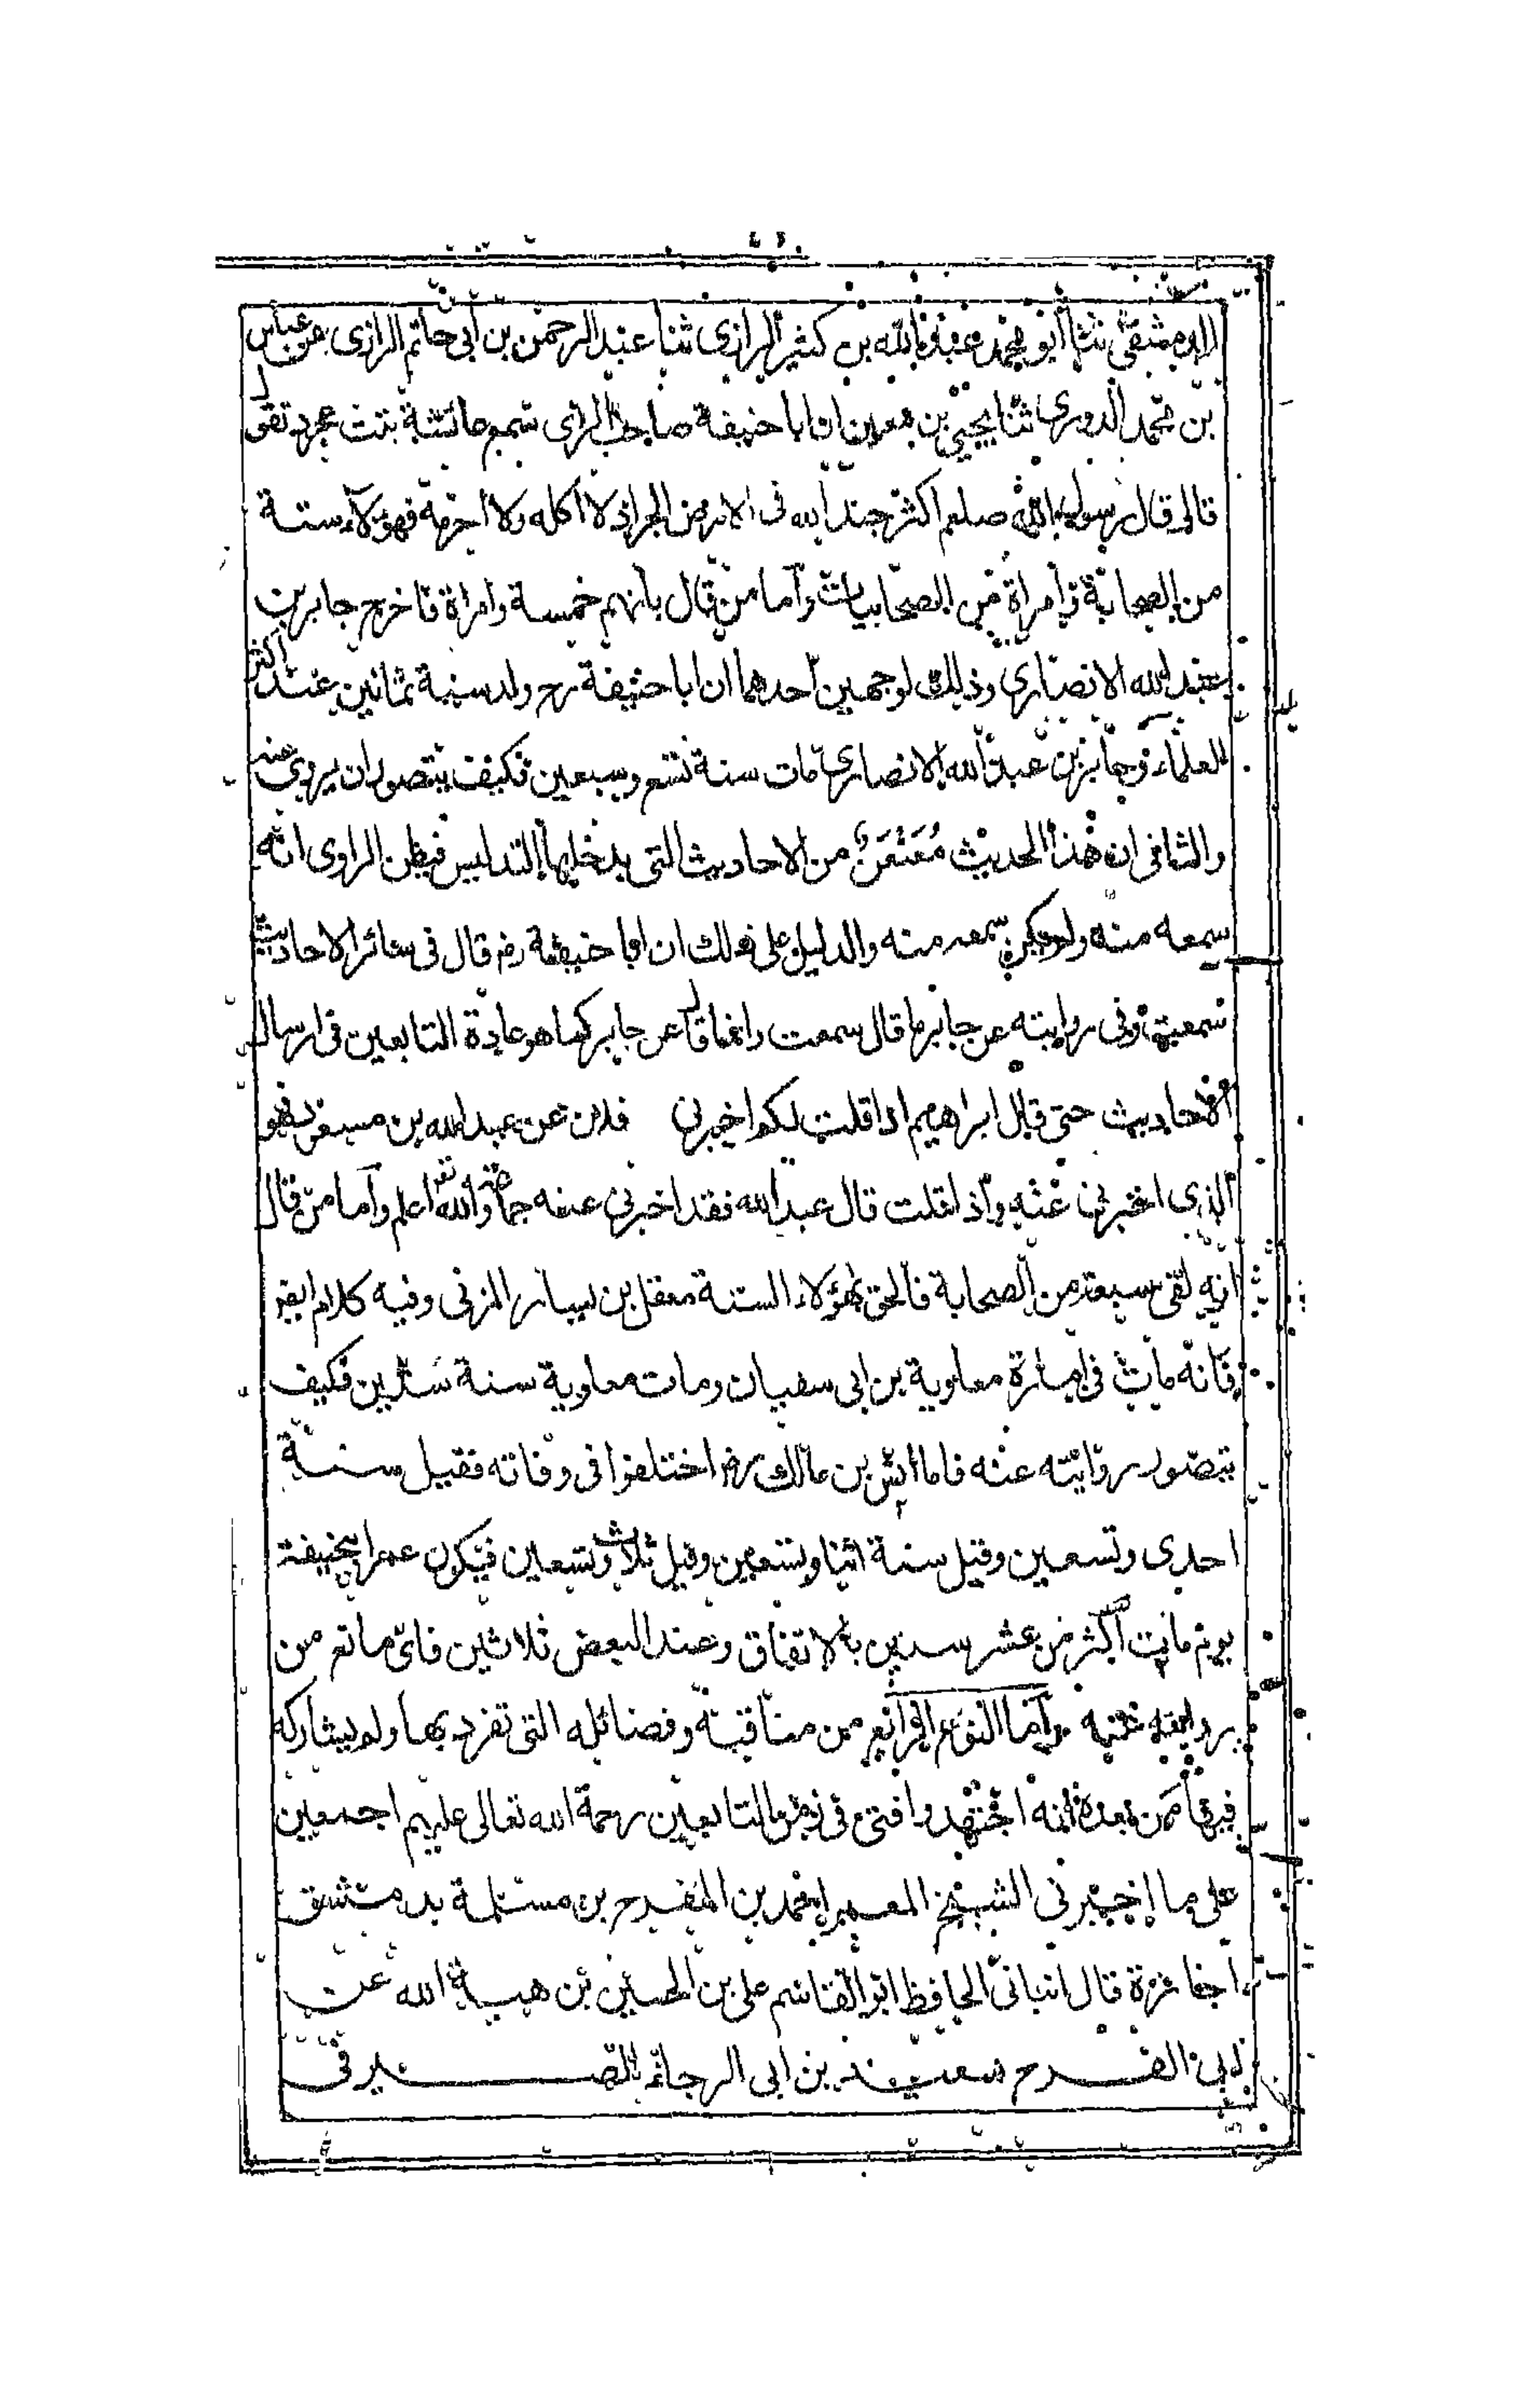 الدمشقي ثنا أبو محمد عبد الله بن كثير الرازي ثنا عبد الرحمن بن أبي حاتم الرازي عن عباس
بن محمد الدوري ثنا يحيى بن معين ان ابا حنيفة صاحب الراى سمع عائشة بنت عجرد تقول
قال قال رسول الله صلعم اكثر جند الله فى الارض الجراد لا اكله ولا احرمه فهؤلاء ستة
من الصحابة وامراة من الصحابيات وأما من قال بانهم خمسة وامراة فاخرج جابر بن
عبد الله الانصاري وذلك لوجهين احدهما ان ابا حنيفة رح ولد سنة ثمانين عند اكثر
العلماء وجابر بن عبد الله الانصارى مات سنة تسع وسبعين فكيف يتصور ان يروى عنه
والثانى ان هذا الحديث مُعَنْعَنٌ من الاحاديث التى يدخلها التدليس فيظن الراوى انه
سمعه منه ولم يكن سمعه منه والدليل على ذلك ان ابا حنيفة رض قال فى سائر الاحاديث
سمعت وفى روايته عن جابر ما قال سمعت وانما قال عن جابر كما هو عادة التابعين فى ارسال
الاحاديث حتى قال ابراهيم اذا قلت لكم اخبرنى فلان عن عبد الله بن مسعود فهو
الذى اخبرنى عنه واذا قلت قال عبد الله فقد اخبرنى عنه جماعة والله تع اعلم وأما من قال
انه لقى سبعة من الصحابة فالحق بهؤلاء الستة معقل بن يسار المزنى وفيه كلام ايض
فانه مات فى امارة معاوية بن ابى سفيان ومات معاوية سنة ستين فكيف
يتصور روايته عنه فاما انس بن مالك رض اختلفوا فى وفاته فقيل سنة
احدى وتسعين وقيل سنة اثنا وتسعين وقيل ثلاث وتسعين فيكون عمر ابيحنيفة
يوم مات اكثر من عشر سنين بالاتفاق وعند البعض ثلاثين فاى مانع من
روايته عنه واما النوع الرابع من مناقبه وفضائله التى تفرد بها ولم يشاركه
فيها من بعده انه اجتهد وافتى فى زمن التابعين رحمة الله تعالى عليهم اجمعين
على ما اخبرنى الشيخ المعمر احمد بن المفرح بن مسلمة بدمشق
اجازة قال انبانى الحافظ ابو القاسم على بن الحسين بن هبة الله عن
ابى الفرح سعيد بن ابى الرجاء الصيرفى